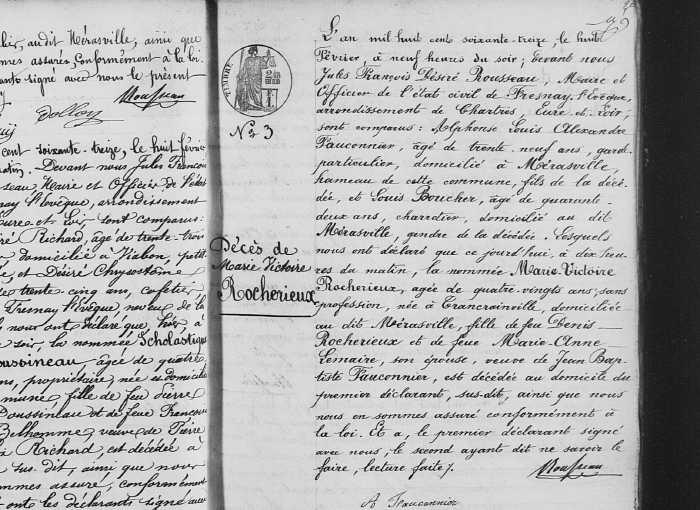 lié, au dit Mérasville, ainsi que
mes assurés, conformément à la loi.
signé avec nous le présent
Rousseau
cent soixante-treize, le huit Févri
Devant nous Jules François
seau Maire et Officier de l'état
nay l'Evêque, arrondissement
Eure et Loir sont comparus:
Richard, âgé de trente-troi
domicilié à Viabon, petit
, et Désiré Chrysostôme
de trente cinq ans, cafetier
Fresnay l'Evêque, neveu de la
nous ont déclaré que, hier à
soir la nommée Scholastique
oussineau âgée de quatre
ns, propriétaire, née et domicili
mune fille de feu
Doussineau et de feue François
Belhomme, veuve de Pierre
Richard, est décédée à
sus dit, ainsi que nous
mmes assuré, conformément
ont les déclarants signé avec
TIMBRE
No 3
Décès de
Marie Victoire
Rocherieux
L'an mil huit cent soixante-treize, le huit
Février, à neuf heures du soir; devant nous
Jules François Désiré Rousseau, Maire et
Officier de l'état civil de Fresnay l'Evêque,
arrondissement de Chartres, Eure et Loir;
sont comparus: Alphonse Louis Alexandre
Fauconnier, âgé de trente-neuf ans, garde
particulier, domicilié à Mérasville,
hameau de cette commune, fils de la décé-
dée, et Louis Boucher, âgé de quarante-
deux ans, charretier, domicilié au dit
Mérasville, gendre de la décédée. Lesquels
nous ont déclaré que ce jourd'hui, à dix heu-
res du matin, la nommée Marie-Victoire
Rocherieux, âgée de quatre-vingts ans; sans
profession, née à Trancrainville, domiciliée
au dit Mérasville, fille de feu Denis
Rocherieux et de feue Marie-Anne
Lemaire, son épouse, veuve de Jean Bap-
tiste Fauconnier, est décédée au domicile du
premier déclarant, sus-dit, ainsi que nous
nous en sommes assuré conformément à
la loi. Et a, le premier déclarant signé
avec nous; le second ayant dit ne savoir le
faire, lecture faite.
Rousseau
A Fauconnier